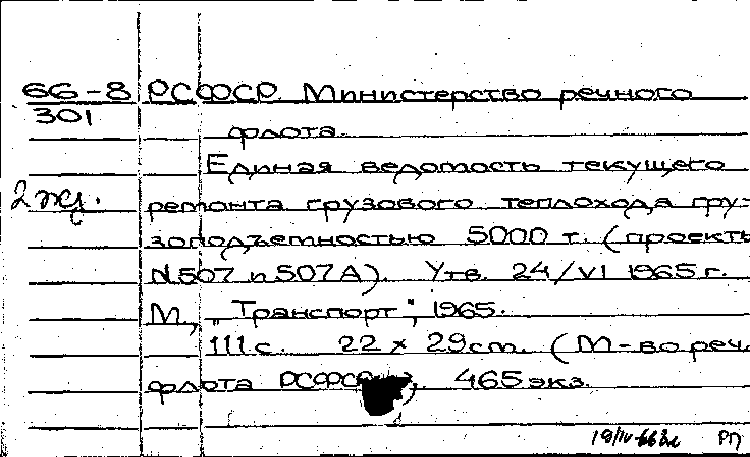 66-8 РСФСР. Министерство речного
301
флота.
Единая ведомость текущего
2 жд. ремонта грузового теплохода гру-
зоподъемностью 5000 т. (проекты
N507 и 507А). Утв. 24/VI 1965 г.
М., "Транспорт", 1965.
111 с. 22 х 29 cm. (М-во реч.
флота РСФСР). 465 экз.
РП